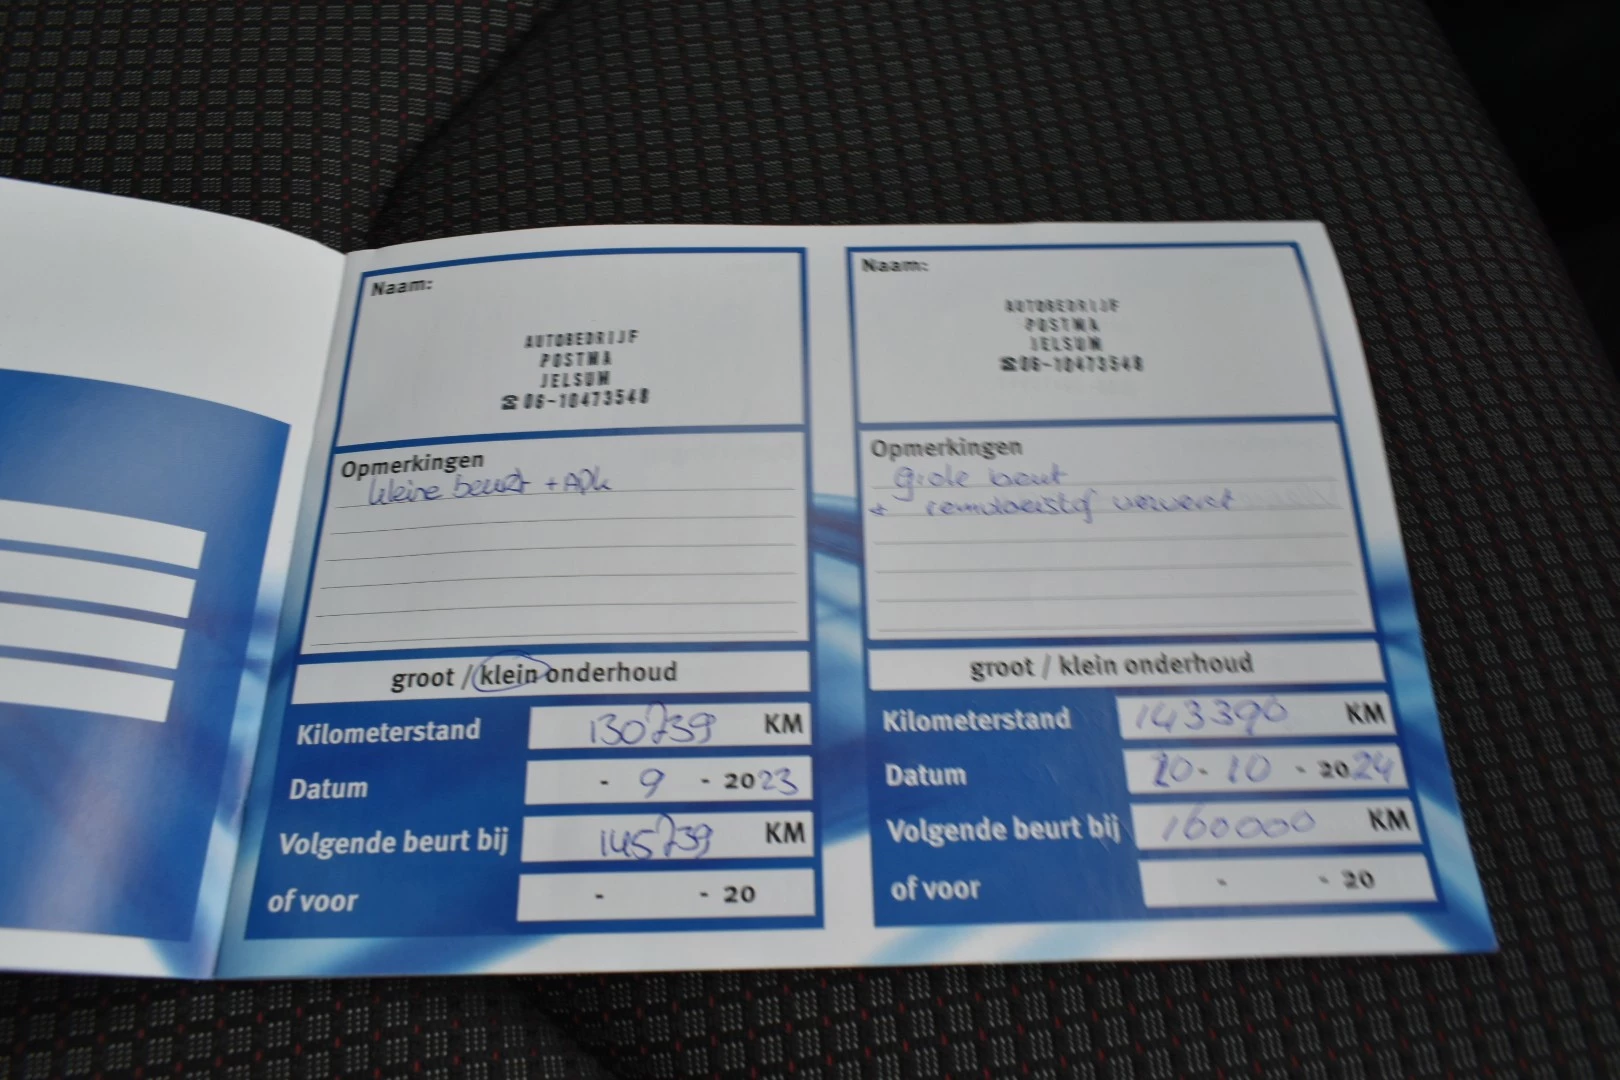 Naam:
AUTOBEDRIJF
POSTMA
JELSUM
☎ 06-10473548
Opmerkingen
kleine beurt + APk
groot / klein onderhoud
Kilometerstand 130739 KM
Datum - 9 - 2023
Volgende beurt bij 145739 KM
of voor - - 20
Naam:
AUTOBEDRIJF
POSTMA
JELSUM
☎06-10473548
Opmerkingen
Grote beurt
+ remvloeistof ververst
groot / klein onderhoud
Kilometerstand 143390 KM
Datum 20 - 10 - 2024
Volgende beurt bij 160000 KM
of voor - - 20